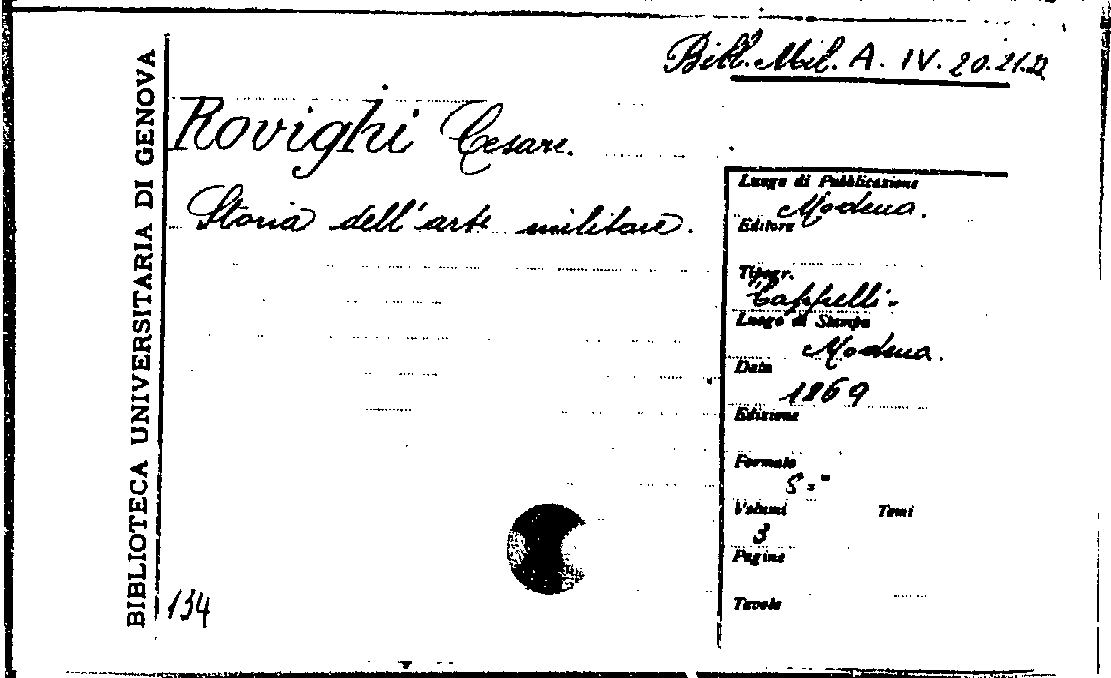 Bibl. Mil. A. IV. 20.21.22
BIBLIOTECA UNIVERSITARIA DI GENOVA
Rovighi Cesare.
Storia dell'arte militare.
Luogo di Pubblicazione
Modena.
Editore
Tipogr.
Cappelli.
Luogo di Stampa
Modena.
Data
1869
Edizione
Formato
Volumi Tomi
3
Pagine
Tavole
134